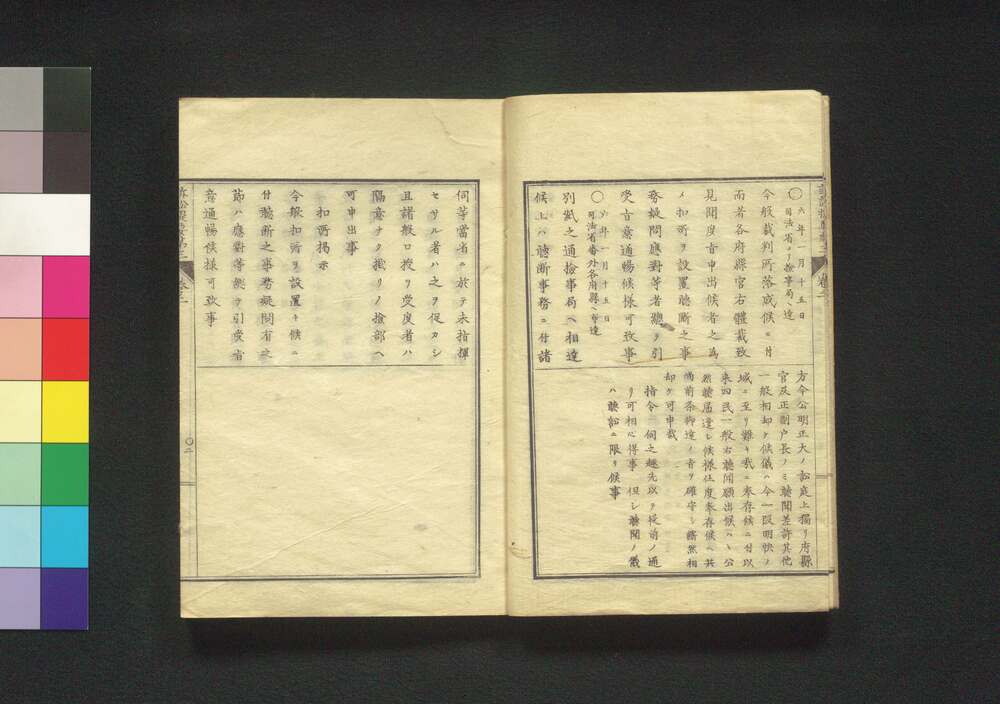 ○六年一月十五日
司法省ヨリ撿事局ヘ達
今般裁判所落成候ニ付
而者各府縣官右體裁致
見聞度旨申出候者之為
メ扣所ヲ設置聽断之事
務疑問應對等者聽ヲ引
受吉意通暢候様可致事
○六年一月十五日
司法省番外各府縣ヘ布達
別紙之通撿事局ヘ相達
候上ハ聽断事務ニ付諸
方今公明正大ノ訟庭上獨リ府縣
官及正副戸長ノミ聽聞差許其他
一般相却ケ候儀ハ今一段明快ノ
域ニ至リ難キ哉ニ奉存候ニ付以
来四民一般右聽聞願出候ハヽ公
然聽届達シ候様仕度奉存候ヘ共
尚前条御達ノ旨ヲ確守シ譾然相
却ケ可申哉
指令 伺之趣先以テ從前ノ通
リ可相心得事 但シ聽聞ノ儀
ハ聽訟ニ限リ候事
伺等當省ニ於テ未指揮
セサル者ハ之ヲ促カシ
且諸般口授ヲ受度者ハ
隔意ナク掛リノ撿部ヘ
可申出事
扣所揭示
今般扣所ヲ設置キ候ニ
付聽断之事務疑問有之
節ハ應對等能ヲ引受省
意通暢候様可致事
〇二